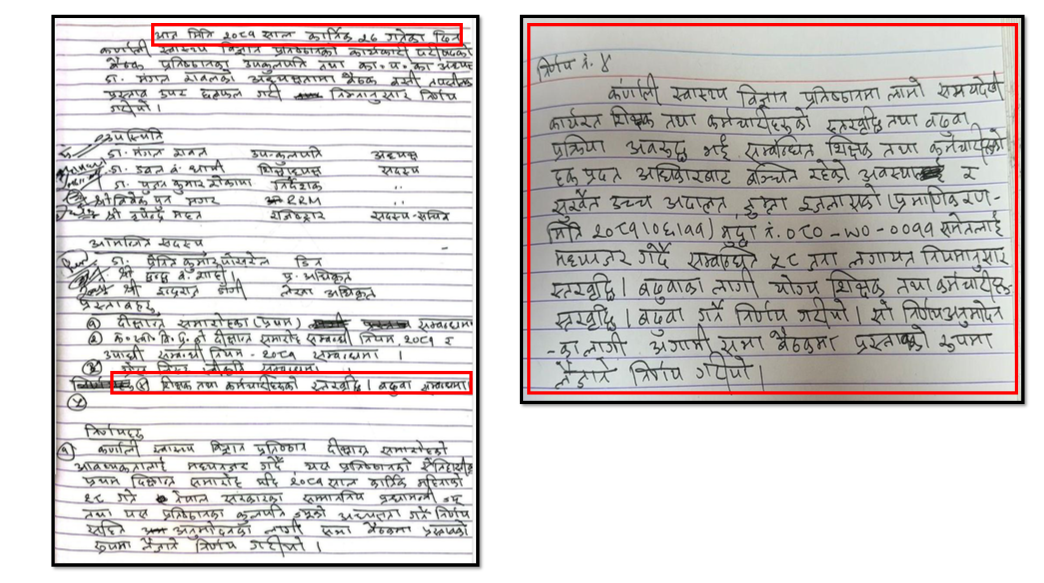 आज मिति २०८१ साल कार्तिक २६ गतेका दिन
कर्णाली स्वास्थ्य विज्ञान प्रतिष्ठानको कार्यकारी परिषदको
बैठक प्रतिष्ठानका उपकुलपति तथा का.प. का अध्यक्ष
डा. मंगल रावलको अध्यक्षतामा बैठक बसी
प्रस्ताव उपर छलफल गरी निम्नानुसार निर्णय
गरीयो ।
उपस्थिति
डा. मंगल रावल उप-कुलपति अध्यक्ष
शिक्षाध्यक्ष सदस्य
डा. पुजन कुमार रोकाया निर्देशक ,,
श्री विवेक पुन मगर RRM ,,
श्री उपेन्द्र महत रजिष्ट्रार सदस्य-सचिव
आमन्त्रित सदस्य
डा. कुमार डिन
श्री प्र. अधिकृत
श्री लेखा अधिकृत
प्रस्तावहरु
(१) दीक्षान्त समारोहका (प्रथम) सम्बन्धमा
(२) क.स्वा.वि.प्र. को दीक्षान्त समारोह सम्बन्धी नियम २०८१ र
उपाधी सम्बन्धी नियम - २०८१ सम्बन्धमा ।
सम्बन्धमा ।
(४) शिक्षक तथा कर्मचारीहरुको स्तरवृद्धि । बढुवा सम्बन्धमा
(५)
निर्णयहरु
(१) कर्णाली स्वास्थ्य विज्ञान प्रतिष्ठान दीक्षान्त समारोहको
आवश्यकतालाई मध्यनजर गर्दै यस प्रतिष्ठानको ऐतिहासिक
प्रथम दिक्षान्त समारोह यहि २०८१ साल कार्तिक महिनाको
२८ गते नेपाल सरकारका सम्माननिय प्रधानमन्त्री
तथा यस प्रतिष्ठानका कुलपति ज्यूको अध्यक्षता गर्ने निर्णय
सहित अनुमोदनका लागी सभा बैठकमा प्रस्तावको
रुपमा लैजाने निर्णय गरीयो ।
निर्णय नं. ४
कर्णाली स्वास्थ्य विज्ञान प्रतिष्ठानमा लामो समयदेखी
कार्यरत शिक्षक तथा कर्मचारीहरुको स्तरवृद्धि तथा बढुवा
प्रक्रिया अवरुद्ध भई सम्बन्धित शिक्षक तथा कर्मचारीहरुको
हक प्रदत्त अधिकारबाट बञ्चित रहेको अवस्था र
सुर्खेत उच्च अदालत, जुम्ला इजलासको (प्रमाणिकरण-
मिति २०८१।०६।११) मुद्दा नं. ०८०-WO-००११ समेतलाई
मध्यनजर गर्दै सम्बन्धि लगायत नियमानुसार
स्तरवृद्धि । बढुवाका लागी योग्य शिक्षक तथा कर्मचारीहरु
स्तरवृद्धि । बढुवा गर्ने निर्णय गरीयो । सो निर्णय अनुमोदन
-का लागी अगामी सभा बैठकमा प्रस्तावको रुपमा
लैजाने निर्णय गरीयो ।